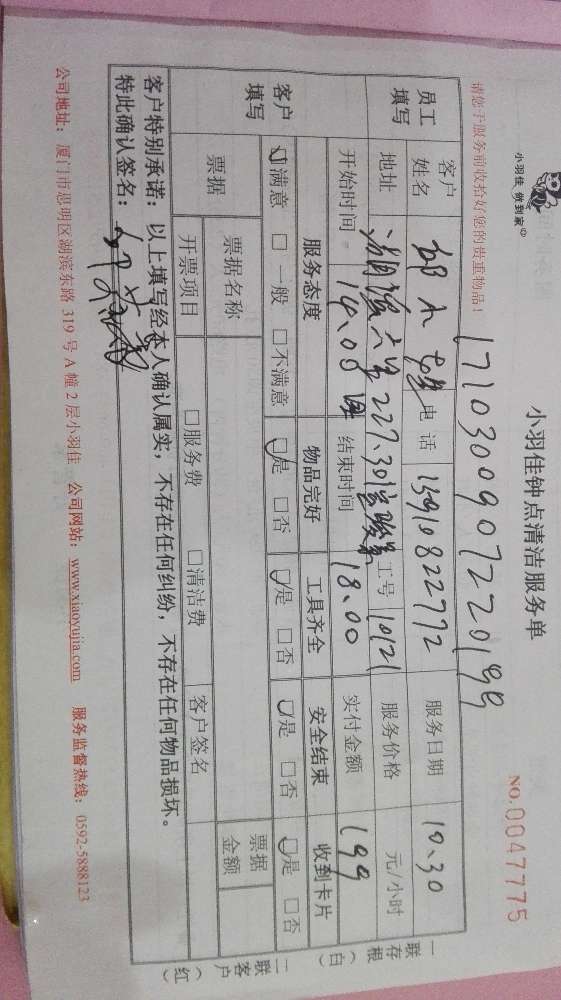 小羽佳 做到家
小羽佳钟点清洁服务单
NO.0047775
请您于服务前收拾好您的贵重物品！
171030090722 0199
员工填写
客户姓名 电话 13910822772 服务日期 10、30
地址 工号 10121 服务价格 元/小时
开始时间 14、05 结束时间 18、00 实付金额 199
客户填写
服务态度 物品完好 工具齐全 安全结束 收到卡片
☑满意 □一般 □不满意 ☑是 □否 ☑是 □否 ☑是 □否 ☑是 □否
票据 票据名称 票据金额
开票项目 □服务费 □清洁费 客户签名
客户特别承诺：以上填写经本人确认属实，不存在任何纠纷，不存在任何物品损坏。
特此确认签名：
公司地址：厦门市思明区湖滨东路 319 号 A 幢 2 层小羽佳 公司网站：www.xiaoyujia.com 服务监督热线：0592-5888123
一联存根（白）
二联客户（红）